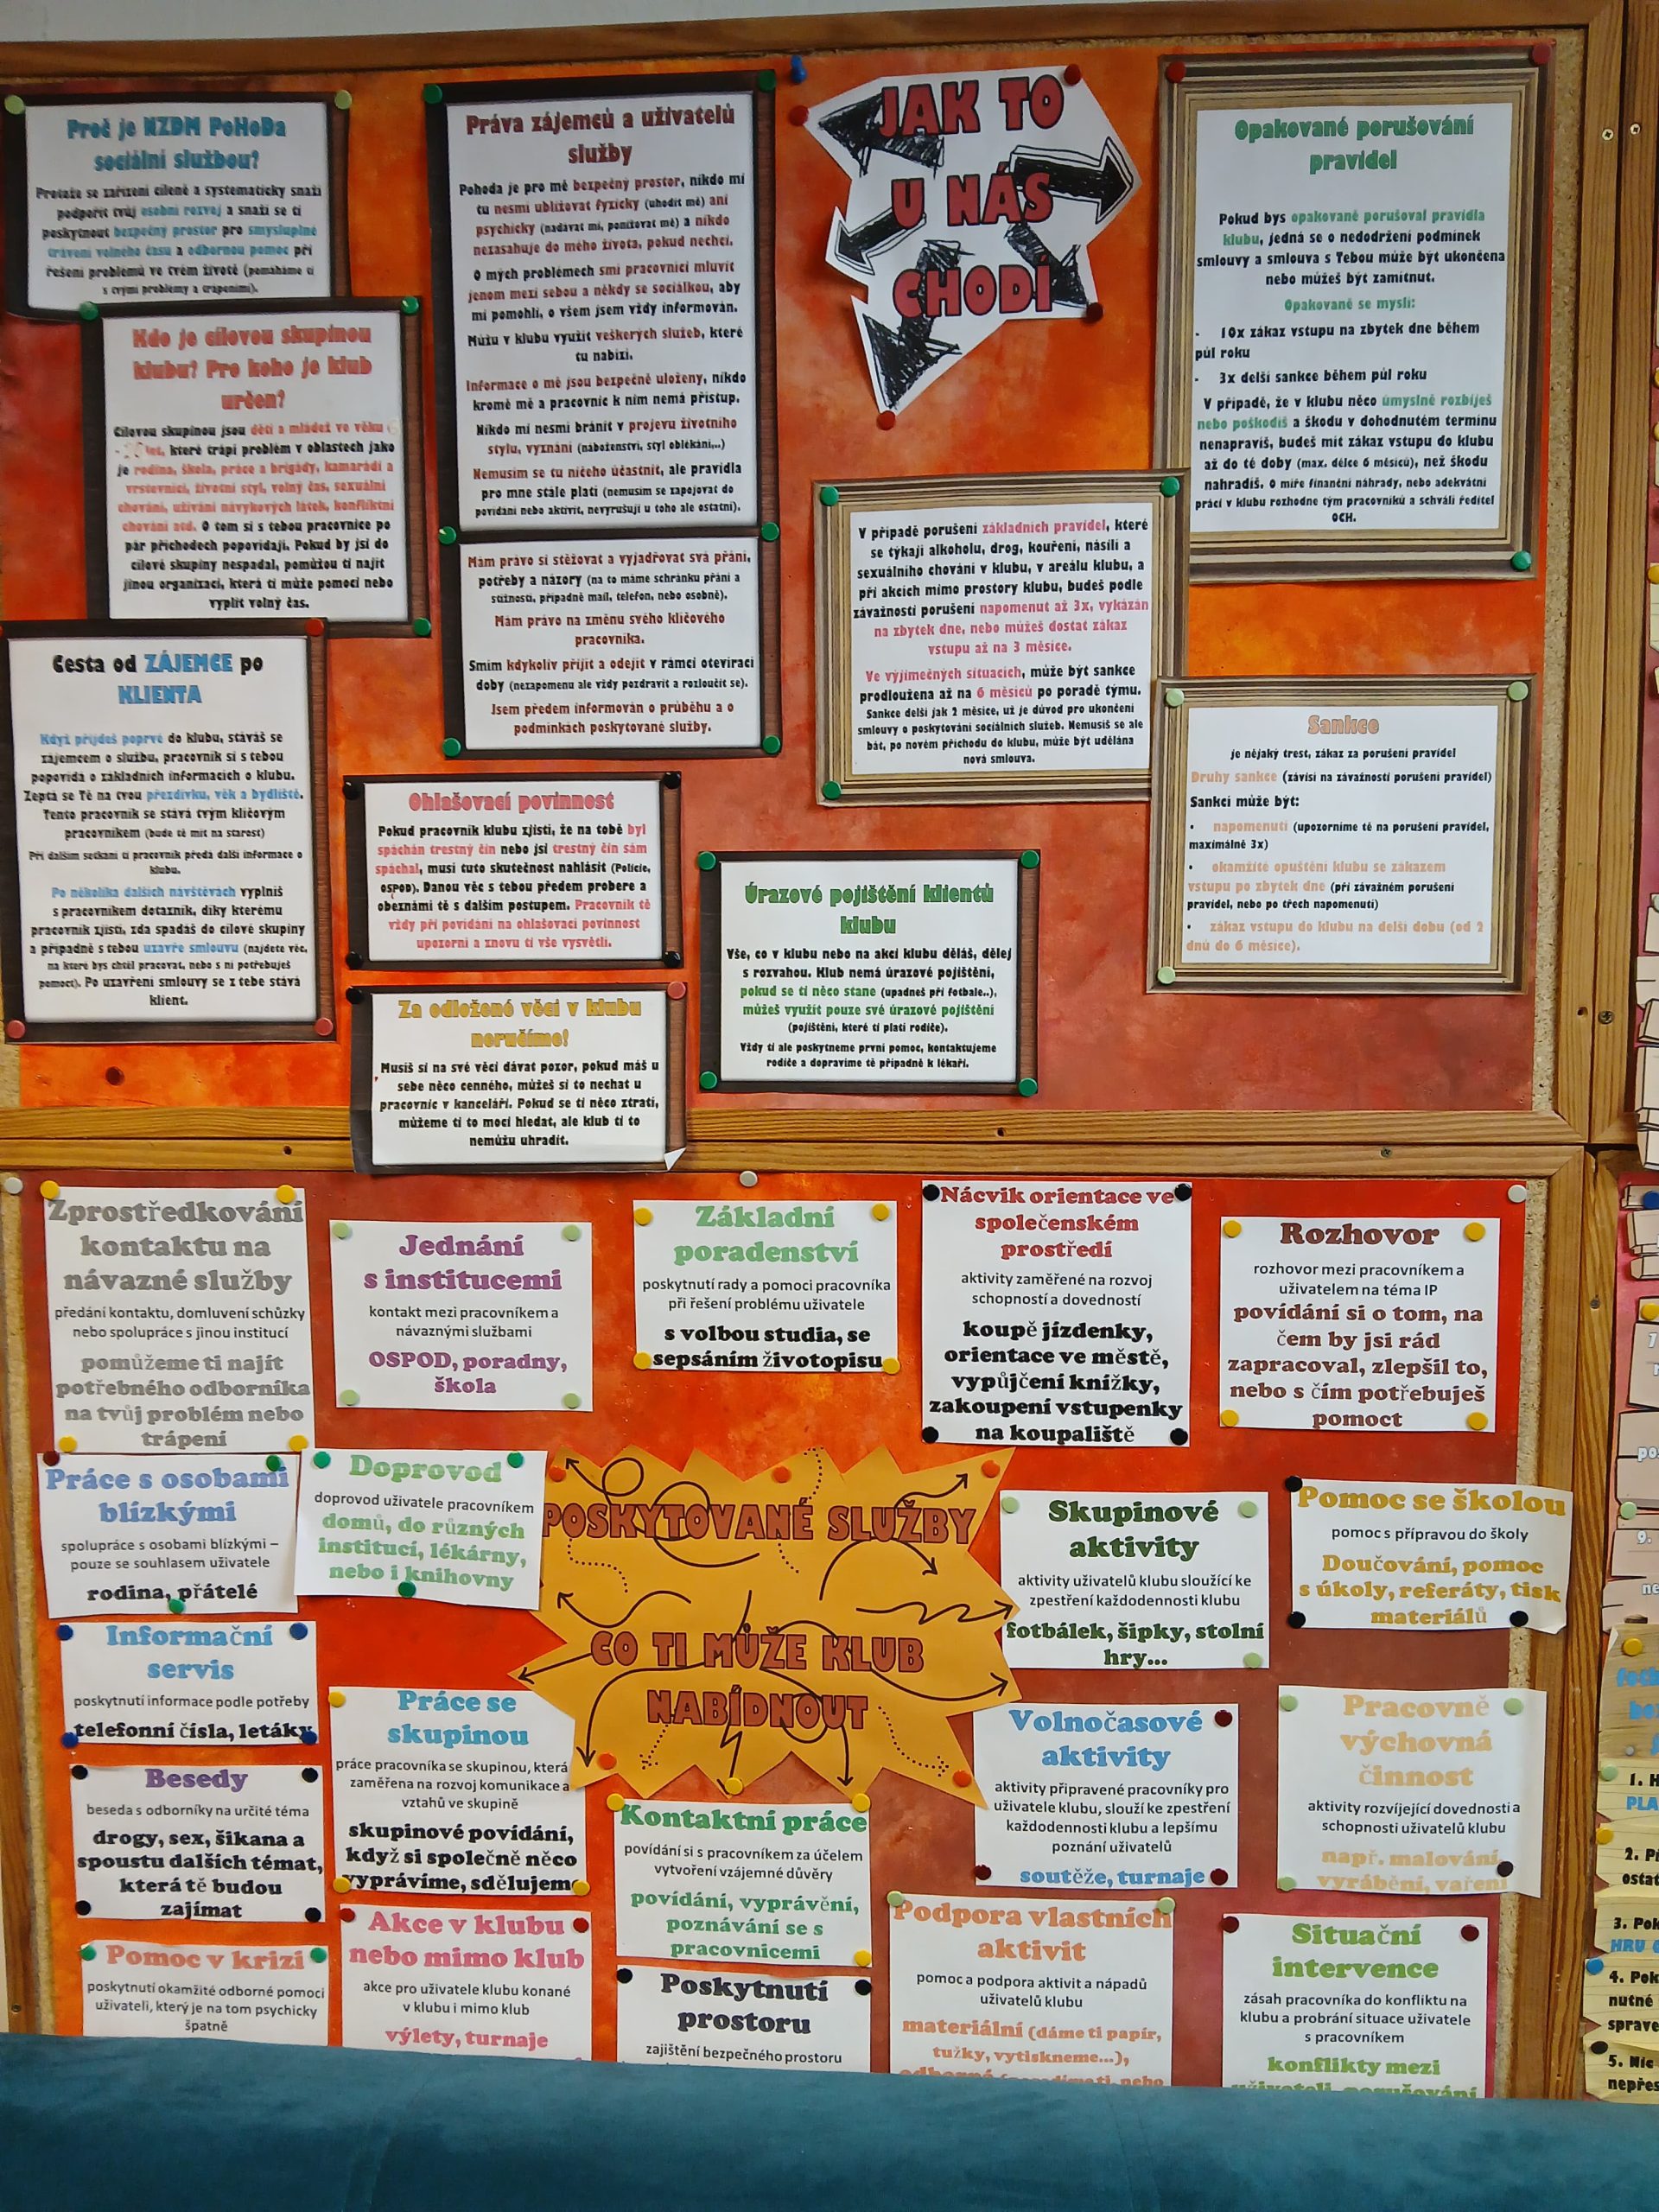 Proč je NZDM PoHoDa
sociální službou?
Protože se zařízení cíleně a systematicky snaží
podpořit tvůj osobní rozvoj a snaží se ti
poskytnout bezpečný prostor pro smysluplné
trávení volného času a odbornou pomoc při
řešení problémů ve tvém životě (pomáháme ti
s tvými problémy a trápeními).
Kdo je cílovou skupinou
klubu? Pro koho je klub
určen?
Cílovou skupinou jsou děti a mládež ve věku
let, které trápí problém v oblastech jako
je rodina, škola, práce a brigády, kamarádi a
vrstevníci, životní styl, volný čas, sexuální
chování, užívání návykových látek, konfliktní
chování atd. O tom si s tebou pracovnice po
pár příchodech popovídají. Pokud by jsi do
cílové skupiny nespadal, pomůžou ti najít
jinou organizaci, která ti může pomoci nebo
vyplít volný čas.
Cesta od ZÁJEMCE po
KLIENTA
Když přijdeš poprvé do klubu, stáváš se
zájemcem o službu, pracovník si s tebou
popovídá o základních informacích o klubu.
Zeptá se Tě na tvou přezdívku, věk a bydliště.
Tento pracovník se stává tvým klíčovým
pracovníkem (bude tě mít na starost)
Při dalším setkání ti pracovník předá další informace o
klubu.
Po několika dalších návštěvách vyplníš
s pracovníkem dotazník, díky kterému
pracovník zjistí, zda spadáš do cílové skupiny
a případně s tebou uzavře smlouvu (najdete věc,
na které bys chtěl pracovat, nebo s ní potřebuješ
pomoct). Po uzavření smlouvy se z tebe stává
klient.
Práva zájemců a uživatelů
služby
Pohoda je pro mě bezpečný prostor, nikdo mi
tu nesmí ubližovat fyzicky (uhodit mě) ani
psychicky (nadávat mi, ponižovat mě) a nikdo
nezasahuje do mého života, pokud nechci.
O mých problémech smí pracovníci mluvit
jenom mezi sebou a někdy se sociálkou, aby
mi pomohli, o všem jsem vždy informován.
Můžu v klubu využít veškerých služeb, které
tu nabízí.
Informace o mě jsou bezpečně uloženy, nikdo
kromě mě a pracovnic k nim nemá přístup.
Nikdo mi nesmí bránit v projevu životního
stylu, vyznání (náboženství, styl oblékání,..)
Nemusím se tu ničeho účastnit, ale pravidla
pro mne stále platí (nemusím se zapojovat do
povídání nebo aktivit, nevyrušuji u toho ale ostatní).
Mám právo si stěžovat a vyjadřovat svá přání,
potřeby a názory (na to máme schránku přání a
stížností, případně mail, telefon, nebo osobně).
Mám právo na změnu svého klíčového
pracovníka.
Smím kdykoliv přijít a odejít v rámci otevírací
doby (nezapomenu ale vždy pozdravit a rozloučit se).
Jsem předem informován o průběhu a o
podmínkách poskytované služby.
Ohlašovací povinnost
Pokud pracovník klubu zjistí, že na tobě byl
spáchán trestný čin nebo jsi trestný čin sám
spáchal, musí tuto skutečnost nahlásit (Policie,
OSPOD). Danou věc s tebou předem probere a
obeznámí tě s dalším postupem. Pracovník tě
vždy při povídání na ohlašovací povinnost
upozorní a znovu ti vše vysvětlí.
Za odložené věci v klubu
neručíme!
Musíš si na své věci dávat pozor, pokud máš u
sebe něco cenného, můžeš si to nechat u
pracovnic v kanceláři. Pokud se ti něco ztratí,
můžeme ti to moci hledat, ale klub ti to
nemůžu uhradit.
JAK TO
U NÁS
CHODÍ
V případě porušení základních pravidel, které
se týkají alkoholu, drog, kouření, násilí a
sexuálního chování v klubu, v areálu klubu, a
při akcích mimo prostory klubu, budeš podle
závažnosti porušení napomenut až 3x, vykázán
na zbytek dne, nebo můžeš dostat zákaz
vstupu až na 3 měsíce.
Ve výjimečných situacích, může být sankce
prodloužena až na 6 měsíců po poradě týmu.
Sankce delší jak 2 měsíce, už je důvod pro ukončení
smlouvy o poskytování sociálních služeb. Nemusíš se ale
bát, po novém příchodu do klubu, může být udělána
nová smlouva.
Úrazové pojištění klientů
klubu
Vše, co v klubu nebo na akci klubu děláš, dělej
s rozvahou. Klub nemá úrazové pojištění,
pokud se ti něco stane (upadneš při fotbale..),
můžeš využít pouze své úrazové pojištění
(pojištění, které ti platí rodiče).
Vždy ti ale poskytneme první pomoc, kontaktujeme
rodiče a dopravíme tě případně k lékaři.
Opakované porušování
pravidel
Pokud bys opakovaně porušoval pravidla
klubu, jedná se o nedodržení podmínek
smlouvy a smlouva s Tebou může být ukončena
nebo můžeš být zamítnut.
Opakovaně se myslí:
- 10x zákaz vstupu na zbytek dne během
půl roku
- 3x delší sankce během půl roku
V případě, že v klubu něco úmyslně rozbiješ
nebo poškodíš a škodu v dohodnutém termínu
nenapravíš, budeš mít zákaz vstupu do klubu
až do té doby (max. délce 6 měsíců), než škodu
nahradíš. O míře finanční náhrady, nebo adekvátní
práci v klubu rozhodne tým pracovníků a schválí ředitel
OCH.
Sankce
je nějaký trest, zákaz za porušení pravidel
Druhy sankce (závisí na závažností porušení pravidel)
Sankcí může být:
• napomenutí (upozorníme tě na porušení pravidel,
maximálně 3x)
• okamžité opuštění klubu se zákazem
vstupu po zbytek dne (při závažném porušení
pravidel, nebo po třech napomenutí)
• zákaz vstupu do klubu na delší dobu (od 2
dnů do 6 měsíce).
Zprostředkování
kontaktu na
návazné služby
předání kontaktu, domluvení schůzky
nebo spolupráce s jinou institucí
pomůžeme ti najít
potřebného odborníka
na tvůj problém nebo
trápení
Jednání
s institucemi
kontakt mezi pracovníkem a
návaznými službami
OSPOD, poradny,
škola
Základní
poradenství
poskytnutí rady a pomoci pracovníka
při řešení problému uživatele
s volbou studia, se
sepsáním životopisu
Nácvik orientace ve
společenském
prostředí
aktivity zaměřené na rozvoj
schopností a dovedností
koupě jízdenky,
orientace ve městě,
vypůjčení knížky,
zakoupení vstupenky
na koupaliště
Rozhovor
rozhovor mezi pracovníkem a
uživatelem na téma IP
povídání si o tom, na
čem by jsi rád
zapracoval, zlepšil to,
nebo s čím potřebuješ
pomoct
Práce s osobami
blízkými
spolupráce s osobami blízkými –
pouze se souhlasem uživatele
rodina, přátelé
Doprovod
doprovod uživatele pracovníkem
domů, do různých
institucí, lékárny,
nebo i knihovny
POSKYTOVANÉ SLUŽBY
CO TI MŮŽE KLUB
NABÍDNOUT
Skupinové
aktivity
aktivity uživatelů klubu sloužící ke
zpestření každodennosti klubu
fotbálek, šipky, stolní
hry...
Pomoc se školou
pomoc s přípravou do školy
Doučování, pomoc
s úkoly, referáty, tisk
materiálů
Informační
servis
poskytnutí informace podle potřeby
telefonní čísla, letáky
Práce se
skupinou
práce pracovníka se skupinou, která
zaměřena na rozvoj komunikace a
vztahů ve skupině
skupinové povídání,
když si společně něco
vyprávíme, sdělujeme
Volnočasové
aktivity
aktivity připravené pracovníky pro
uživatele klubu, slouží ke zpestření
každodennosti klubu a lepšímu
poznání uživatelů
soutěže, turnaje
Pracovně
výchovná
činnost
aktivity rozvíjející dovednosti a
schopnosti uživatelů klubu
např. malování,
vyrábění, vaření
Besedy
beseda s odborníky na určité téma
drogy, sex, šikana a
spoustu dalších témat,
která tě budou
zajímat
Kontaktní práce
povídání si s pracovníkem za účelem
vytvoření vzájemné důvěry
povídání, vyprávění,
poznávání se s
pracovnicemi
Pomoc v krizi
poskytnutí okamžité odborné pomoci
uživateli, který je na tom psychicky
špatně
Akce v klubu
nebo mimo klub
akce pro uživatele klubu konané
v klubu i mimo klub
výlety, turnaje
Poskytnutí
prostoru
zajištění bezpečného prostoru
Podpora vlastních
aktivit
pomoc a podpora aktivit a nápadů
uživatelů klubu
materiální (dáme ti papír,
tužky, vytiskneme...),
Situační
intervence
zásah pracovníka do konfliktu na
klubu a probrání situace uživatele
s pracovníkem
konflikty mezi
uživateli, porušování
1. H
PLA
2. Př
ostat
3. Pok
HRU
4. Pok
nutné
sprave
5. Nic
nepřes